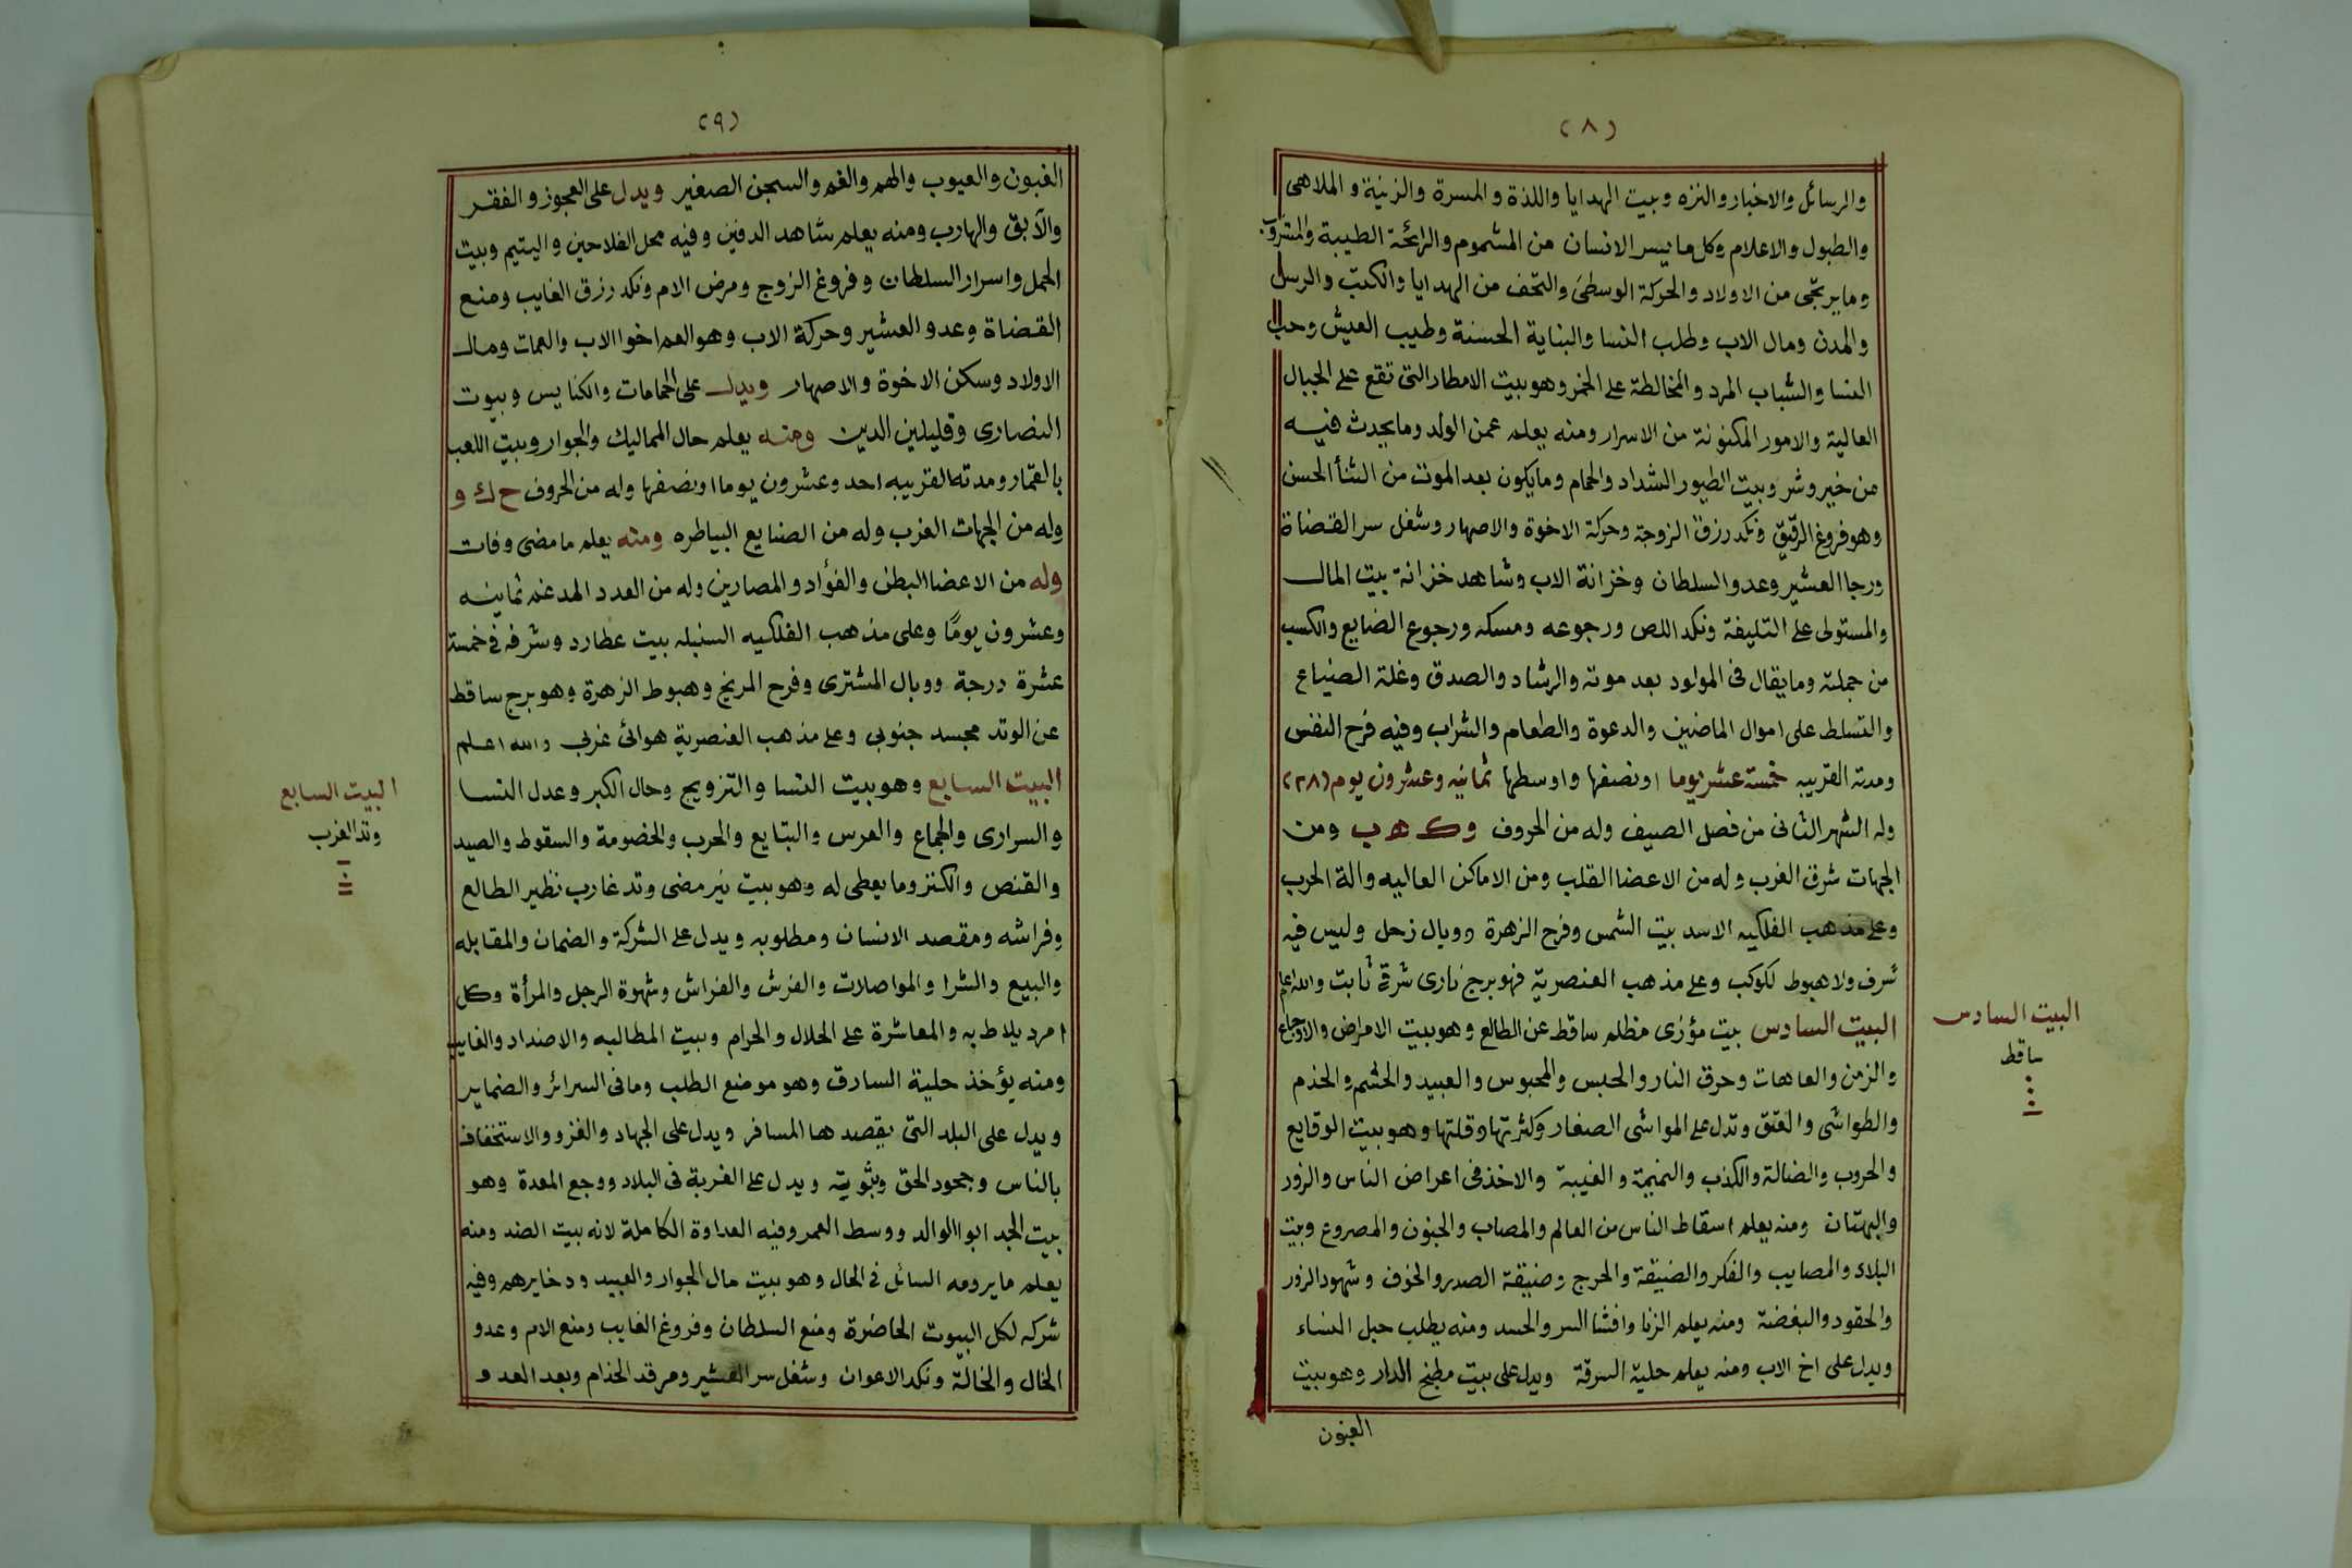 (٨)
والرسائل والاخبار والنزه وبيت الهدايا واللذة والمسرة والزنية والملاهى
والطبول والاعلام وكل ما يسر الانسان من المشموم والرائحة الطيبة والمشروب
وما يرتجى من الاولاد والحركة الوسطى والتحف من الهدايا والكتب والرسل
والمدن ومال الاب وطلب النسا والبناية الحسنة وطيب العيش وحب
النسا والشباب المرد والمخالطة على الخمر وهو بيت الامطار التى تقع على الجبال
العالية والامور المكنونة من الاسرار ومنه يعلم عمن الولد وما يحدث فيه
من خير وشر وبيت الطيور الشداد والحمام وما يكون بعد الموت من الثنأ الحسن
وهو فروغ الرقيق ونكد رزق الزوجة وحركة الاخوة والاصهار وشغل سر القضاة
ورجا العشير وعدو السلطان وخزانة الاب وشاهد خزانة بيت المال
والمستولى على التليفة ونكد اللص ورجوعه ومسكه ورجوع الضايع والكسب
من جملته وما يقال فى المولود بعد موته والرشاد والصدق وغلة الضياع
والتسلط على اموال الماضين والدعوة والطعام والشراب وفيه فرح النفس
ومدته القريبه خمسة عشر يوما او نصفها واوسطها ثمانيه وعشرون يوم (٢٨)
وله الشهر الثانى من فصل الصيف وله من الحروف وك ه ب ومن
الجهات شرق الغرب وله من الاعضا القلب ومن الاماكن العاليه والة الحرب
وعلى مذهب الفلكيه الاسد بيت الشمس وفرح الزهرة ووبال زحل وليس فيه
شرف ولا هبوط لكوكب وعلى مذهب العنصرية فهو برج نارى شرقى ثابت والله اعلم
البيت السادس بيت مؤزى مظلم ساقط عن الطالع وهو بيت الامراض والاوجاع
والزمن والعاهات وحرق النار والحبس والمحبوس والعبيد والحشم والخدم
والطواشى والعتق وتدل على المواشى الصغار وكثرتها وقلتها وهو بيت الوقايع
والحروب والضالة والكذب والنميمة والغيبة والاخذ فى اعراض الناس والزور
والبهتان ومنه يعلم اسقاط الناس من العالم والمصاب والجنون والمصروع وبيت
البلاء والمصايب والفكر والضيقة والحرج وضيقة الصدر والخوف وشهود الزور
والحقود والبغضة ومنه يعلم الزنا وافشا السر والحسد ومنه يطلب حبل النساء
ويدل على اخ الاب ومنه يعلم حلية السرقة ويدل على بيت مطبخ الدار وهو بيت
الغبون
البيت السادس
ساقط
(٩)
الغبون والعيوب والهم والغم والسجن الصغير ويدل على العجوز والفقر
والآبق والهارب ومنه يعلم شاهد الدفين وفيه محل الفلاحين واليتيم وبيت
الحمل واسرار السلطان وفروغ الزوج ومرض الام ونكد رزق الغايب ومنع
القضاة وعدو العشير وحركة الاب وهو العم اخوا الاب والعمات ومال
الاولاد وسكن الاخوة والاصهار ويدل على الحمامات والكنايس وبيوت
النصارى وقليلين الدين ومنه يعلم حال المماليك والجوار وبيت اللعب
بالقمار ومدته القريبه احد وعشرون يوما او نصفها وله من الحروف ح ك و
وله من الجهات الغرب وله من الصنايع البياطره ومنه يعلم ما مضى وفات
وله من الاعضا البطن والفؤاد والمصارين وله من العدد المدغم ثمانيه
وعشرون يومًا وعلى مذهب الفلكيه السنبله بيت عطارد وشرفه فى خمسة
عشرة درجة ووبال المشترى وفرح المريخ وهبوط الزهرة وهو برج ساقط
عن الوتد مجسد جنوبى وعلى مذهب العنصرية هوائى غربى والله اعلم
البيت السابع وهو بيت النسا والتزويج وحال الكبر وعدل النسا
والسرارى والجماع والعرس والبتايع والحرب والخصومة والسقوط والصيد
والقنص والكنز وما يعطى له وهو بيت نير مضى وتد غارب نظير الطالع
وفراشه ومقصد الانسان ومطلوبه ويدل على الشركة والضمان والمقابله
والبيع والشرا والمواصلات والفرش والفراش وشهوة الرجل والمرأة وكل
امرد يلاط به والمعاشرة على الحلال والحرام وبيت المطالبه والاضداد والغايب
ومنه يؤخذ حلية السارق وهو موضع الطلب وما فى السرائر والضماير
ويدل على البلد التى يقصدها المسافر ويدل على الجهاد والغزو والاستخفاف
بالناس وجحود الحق وثبوته ويدل على الغربة فى البلاد ووجع المعدة وهو
بيت الجد ابو الوالد ووسط العمر وفيه العداوة الكاملة لانه بيت الضد ومنه
يعلم ما يرومه السائل فى الحال وهو بيت مال الجوار والعبيد ودخايرهم وفيه
شركه لكل البيوت الحاضرة ومنع السلطان وفروغ الغايب ومنع الام وعدو
الخال والخالة ونكد الاعوان وشغل سر العشير ومرقد الخدام وبعد العدو
البيت السابع
وتد الغرب